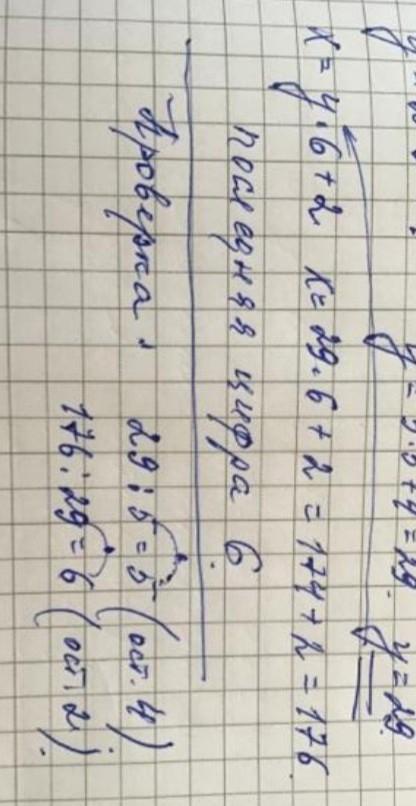 y = 5·5+4 = 29 y = 29
x = y·6+2 x = 29·6+2 = 174+2 = 176
последняя цифра 6
Проверка: 29:5=5 (ост. 4)
176:29=6 (ост. 2).